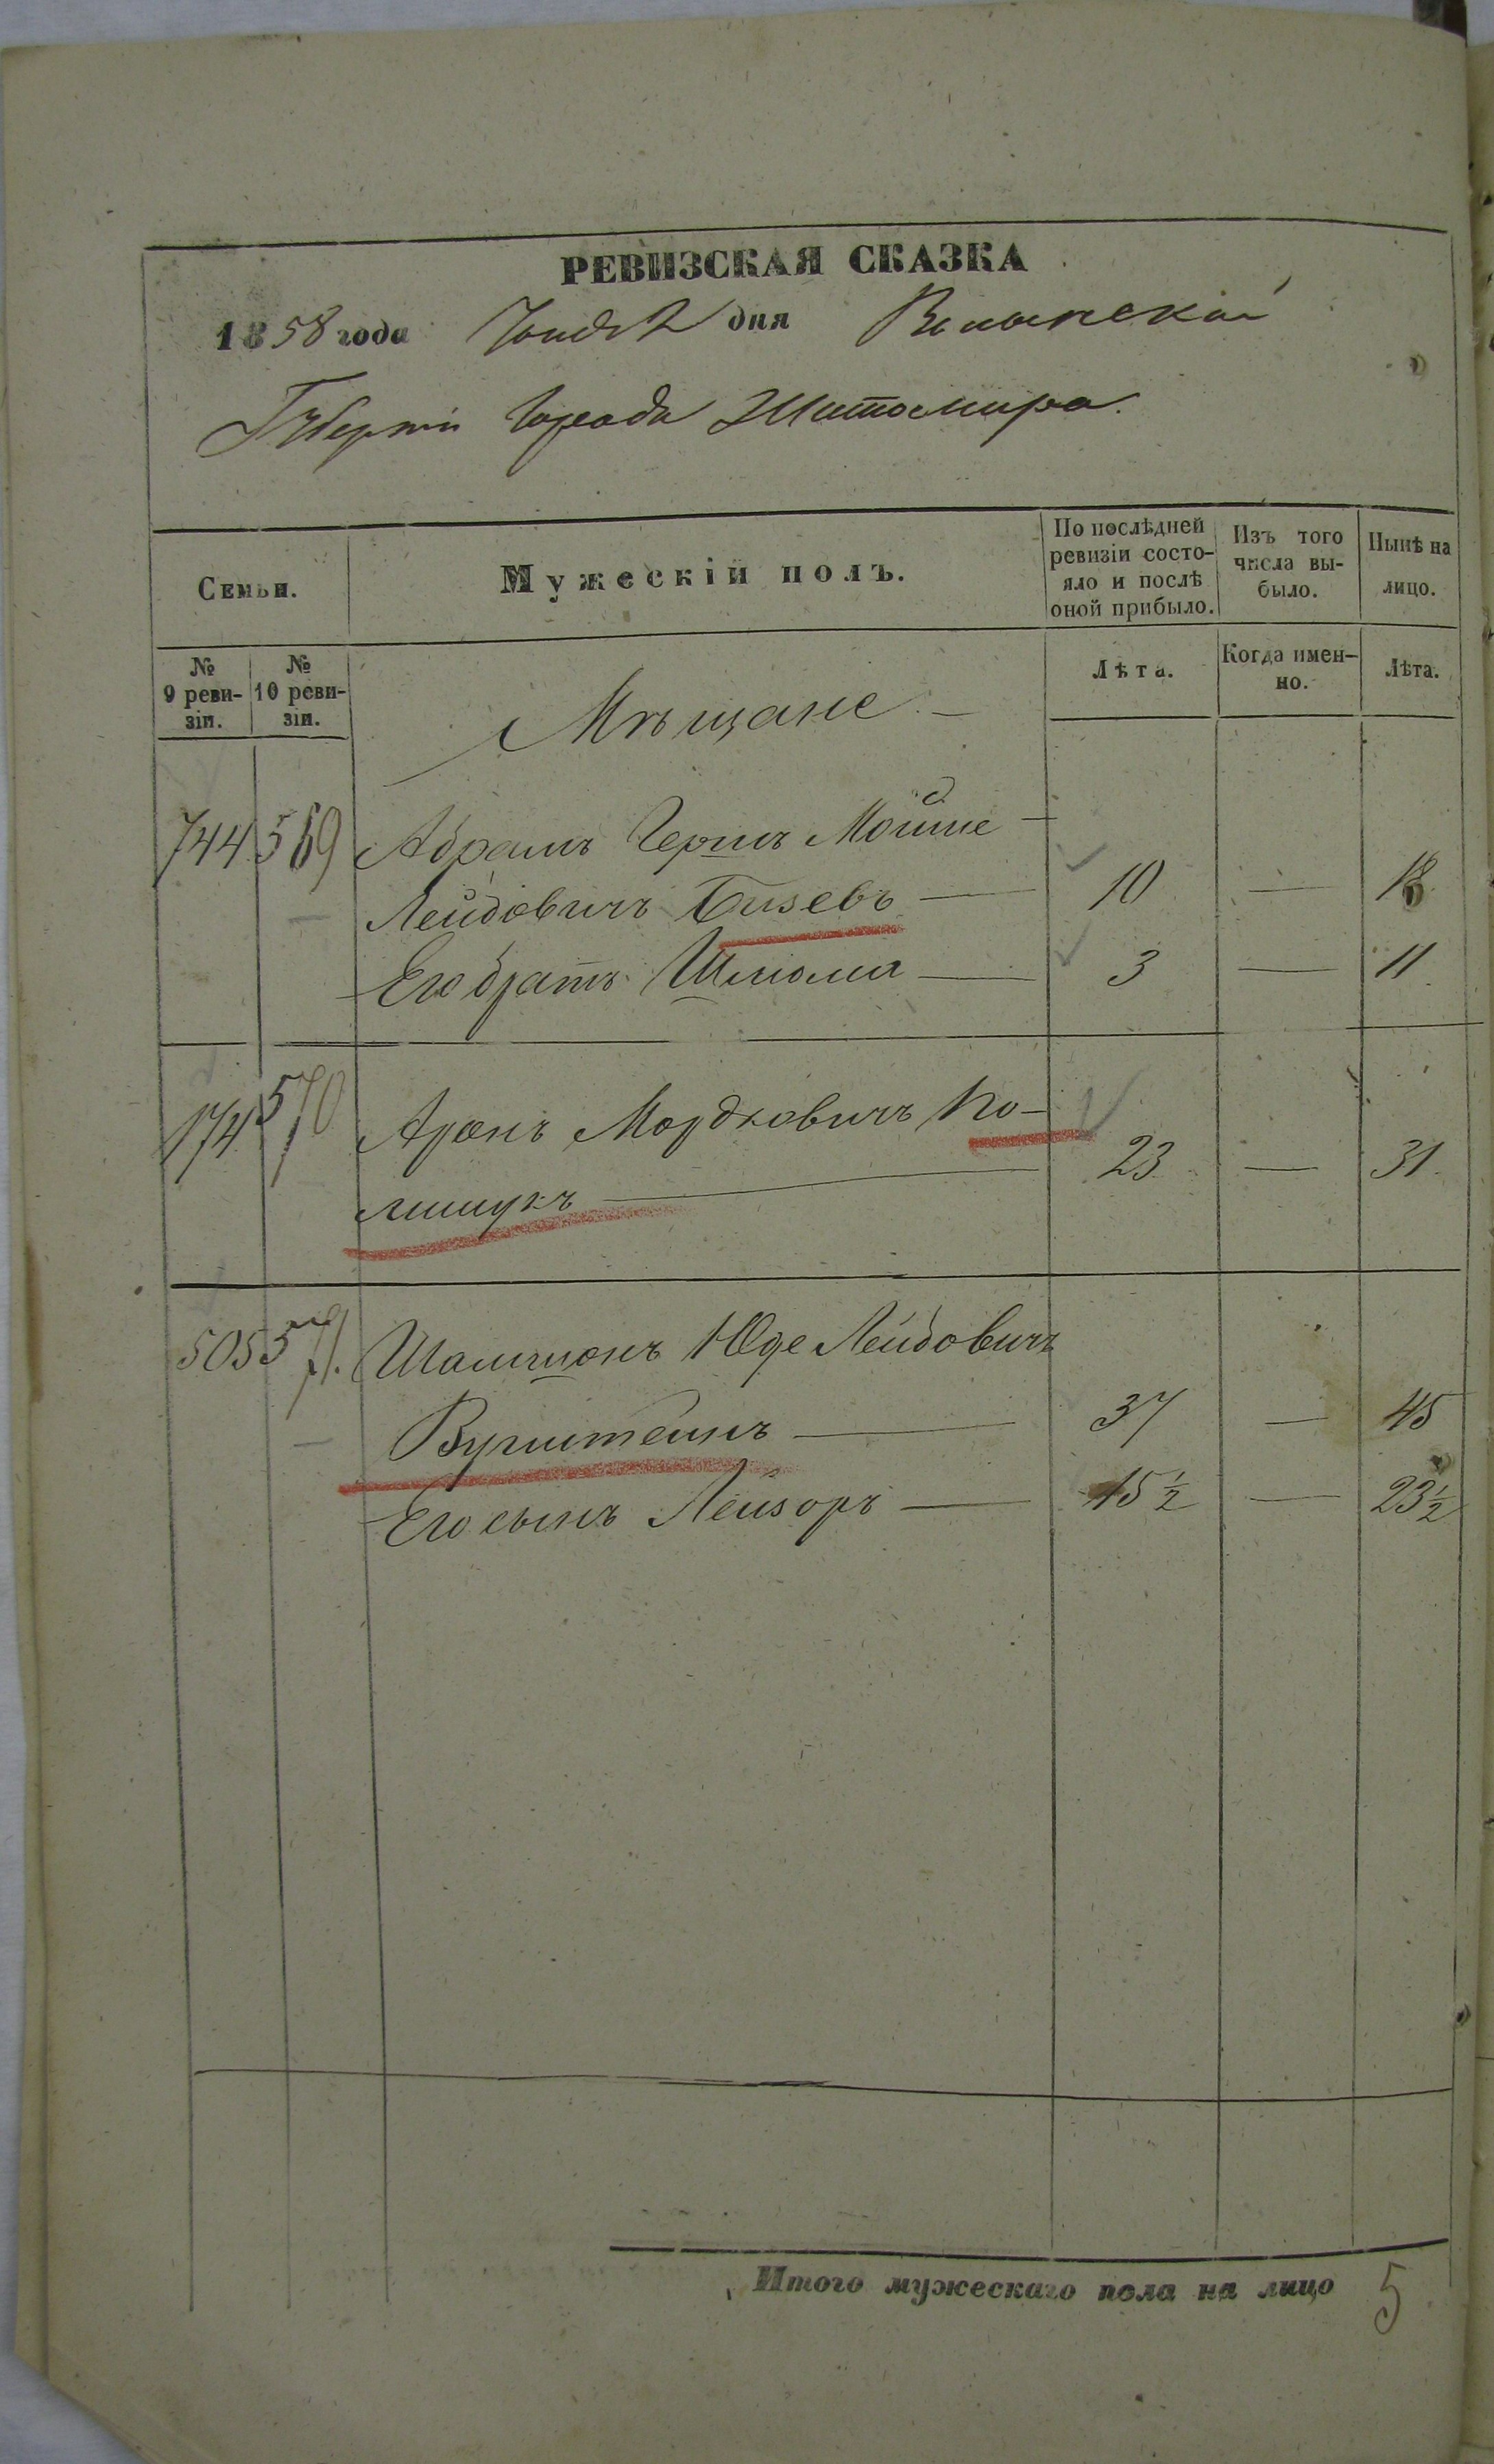 РЕВИЗСКАЯ СКАЗКА
1858 года дня Волынской
Губерніи Города Житомира.
Семьи.
Мужескій полъ.
По послѣдней ревизіи состо-
яло и послѣ
оной прибыло.
Изъ того
числа вы-
было.
Нынѣ на
лицо.
№
9 реви-
зіи.
№
10 реви-
зіи.
Лѣта.
Когда имен-
но.
Лѣта.
Мѣщане
744 569 Абрамъ Гершъ Мойше
Лейбовичъ Бизевъ — 10 — 18
Его братъ Шлиома — 3 — 11
174 570 Аронъ Мордковичъ По-
лищукъ — 23 — 31
505 571. Шалимонъ Юде Лейбовичъ
Вугштейнъ — 37 — 45
Его сынъ Лейзоръ — 15 ½ — 23 ½
Итого мужескаго пола на лицо 5